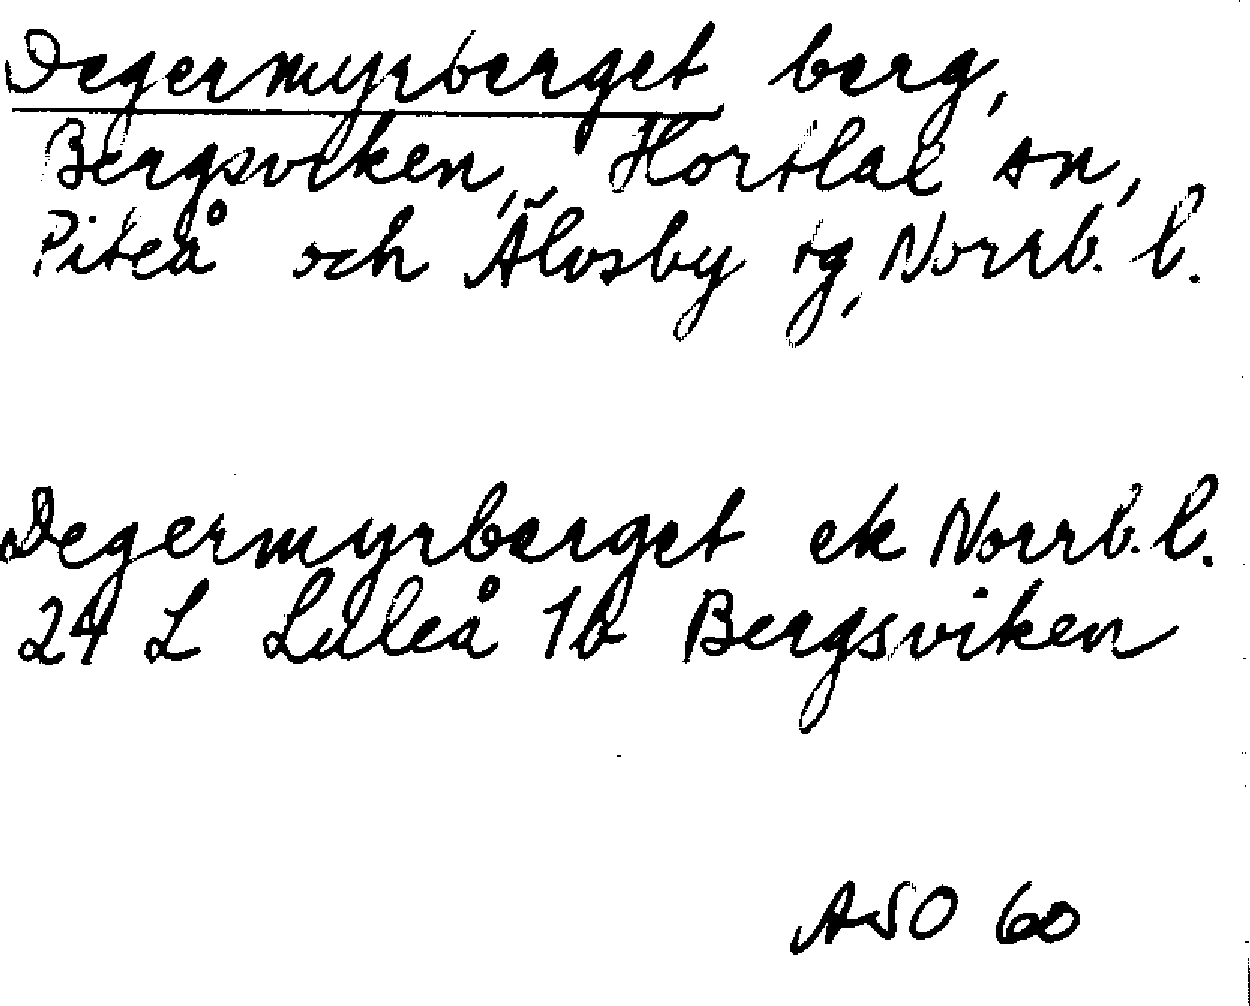 Degermyrberget berg,
Bergsviken, Hortlax sn,
Piteå och Älvsby tg, Norrb. l.
Degermyrberget ek Norrb. l.
24 L Luleå 1b Bergsviken
ASO 60